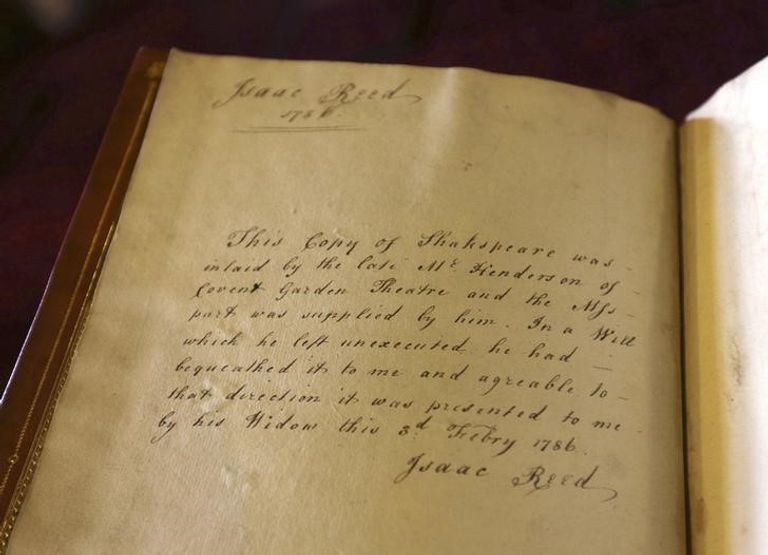 Isaac Reed
1786.
This Copy of Shakspeare was
inlaid by the late Mr. Henderson of
Covent Garden Theatre and the Mss
part was supplied by him. In a Will
which he left unexecuted he had
bequeathed it to me and agreable to
that direction it was presented to me
by his Widow this 3d Febry 1786.
Isaac Reed